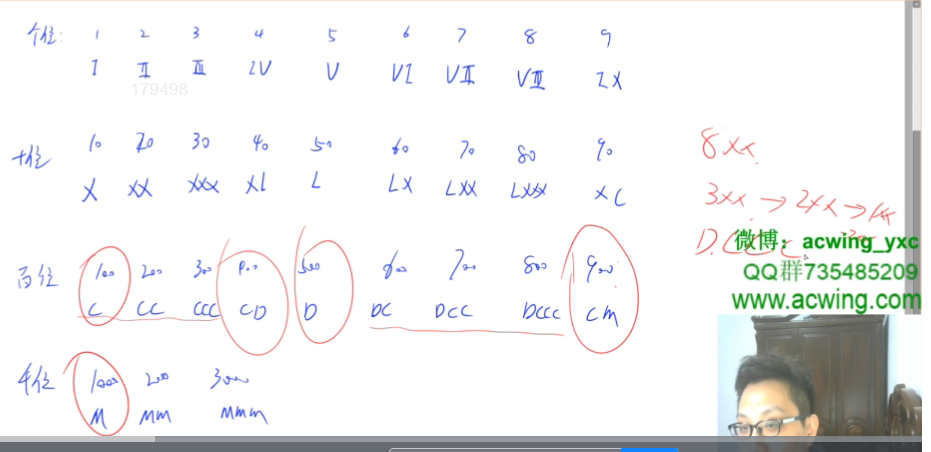 个位: 1 2 3 4 5 6 7 8 9
I II III IV V VI VII VIII IX
179498
十位 10 20 30 40 50 60 70 80 90
X XX XXX XL L LX LXX LXXX XC
8xx
3xx → 2xx → 1xx
D.C
微博：acwing_yxc
QQ群735485209
www.acwing.com
百位 100 200 300 400 500 600 700 800 900
C CC CCC CD D DC DCC DCCC CM
千位 1000 200 3000
M MM MMM